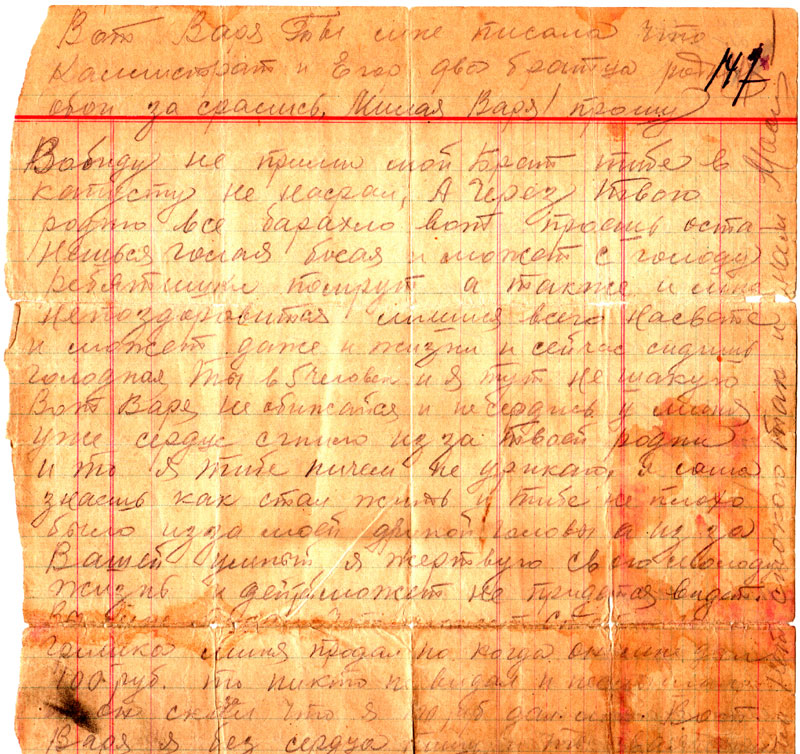 Вот Варя Ты мне писала что
Калистрат и Его два братца
обои за срались, Милая Варя! прошу
147
Вобиду не прими мой Брат тибе в
капусту не насрал, А Через твою
родню все барахло вот проешь оста-
нешься голая босая и может с голоду
ребятишки помрут а также и мне
непоздоровится лишися всего насвете
и может даже и жизни и сейчас сидишь
голодная Ты в 5 человек и я тут не
Вот Варя не обижайся и несердись у миня
уже сердце сгнило из за твоей родни
и то я тибе ничем не уприкаю, и сама
знаешь как стал жить и тибе не плохо
было из за моей дурной головы а из за
Вашей умный я жертвую свою молоду
жизнь и детей может не придется видать.
миня продал но когда он мне дал
100 руб. то никто не видал и
он скажи что я не дал Вот
Варя я без сердца